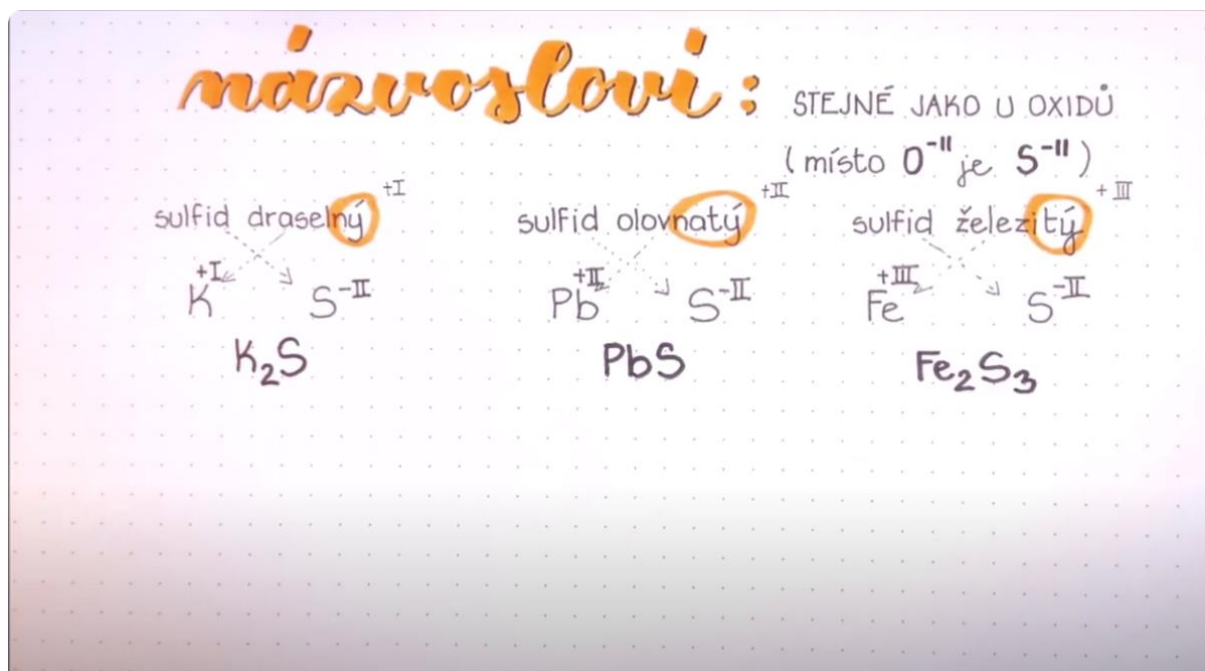 názvosloví: STEJNÉ JAKO U OXIDŮ
(místo O⁻ᴵᴵ je S⁻ᴵᴵ)
sulfid draselný +I
K+I S-II
K₂S
sulfid olovnatý +II
Pb+II S-II
PbS
sulfid železitý +III
Fe+III S-II
Fe₂S₃